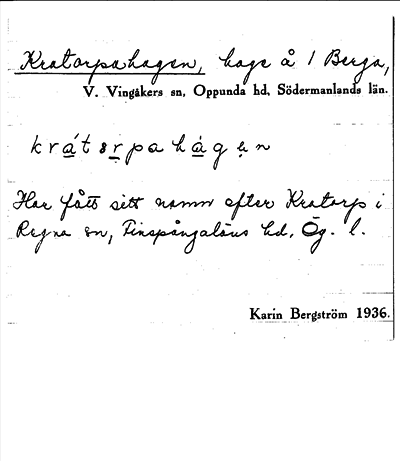 Kratorpahagen, hage å 1 Berga,
V. Vingåkers sn, Oppunda hd, Södermanlands län.
k r á t ɜ r p a h á g ạ n
Har fått sitt namn efter Kratorp i
Regna sn, Finspångaläns hd. Ög. l.
Karin Bergström 1936.